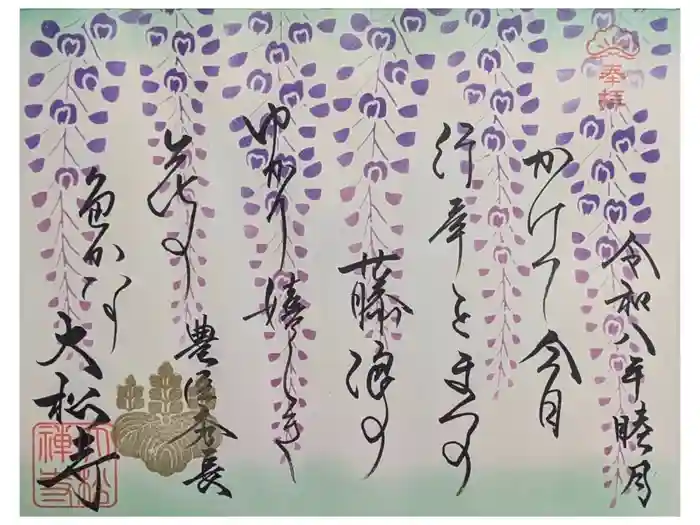 奉拝
令和八年睦月
かけて今日
行幸をまつの
藤浪の
ゆかり嬉しき
花の
色かな
豊臣秀長
大松寺